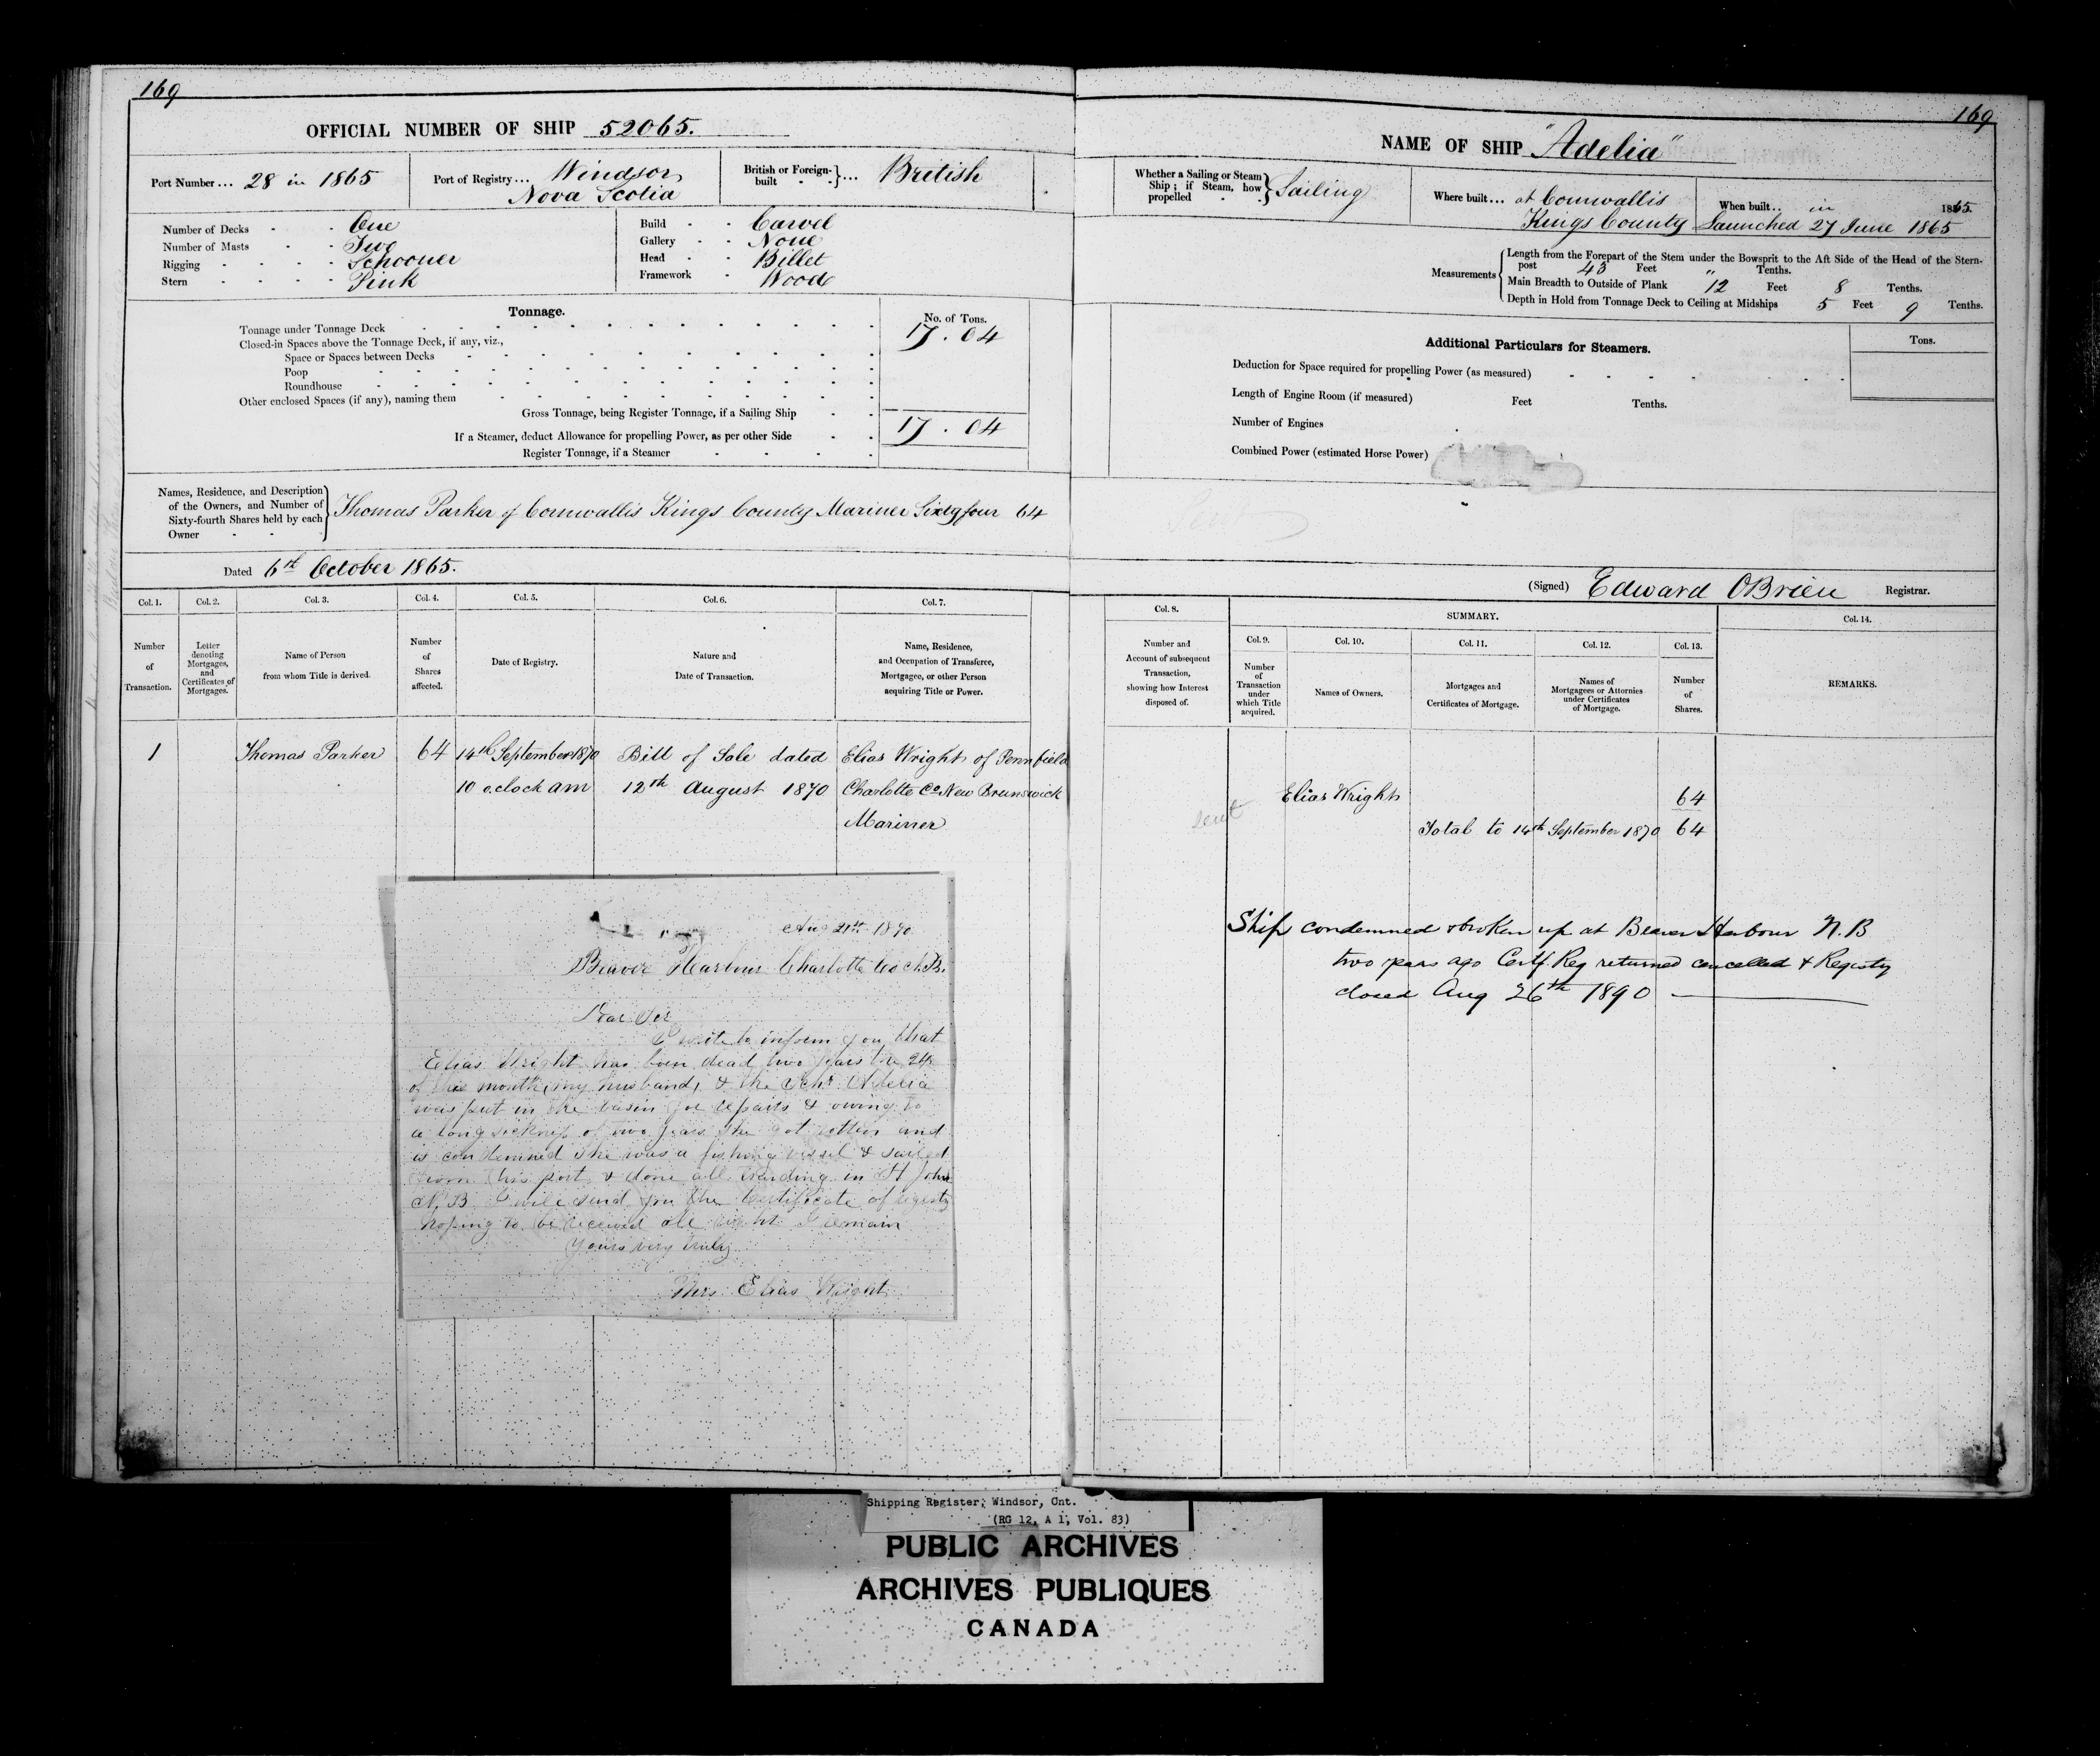 169
OFFICIAL NUMBER OF SHIP 52065.
Port Number... 28 in 1865
Port of Registry... Windsor
Nova Scotia
British or Foreign-built }... British
Number of Decks - - One
Number of Masts - - Two
Rigging - - - - Schooner
Stern - - - - Pink
Build - - Carvel
Gallery - - None
Head - - Billet
Framework - Wood
Tonnage.
No. of Tons.
Tonnage under Tonnage Deck 17.04
Closed-in Spaces above the Tonnage Deck, if any, viz.,
Space or Spaces between Decks
Poop
Roundhouse
Other enclosed Spaces (if any), naming them
Gross Tonnage, being Register Tonnage, if a Sailing Ship 17.04
If a Steamer, deduct Allowance for propelling Power, as per other Side
Register Tonnage, if a Steamer
Names, Residence, and Description
of the Owners, and Number of
Sixty-fourth Shares held by each
Owner
Thomas Parker of Cornwallis Kings County Mariner Sixtyfour 64
Dated 6th October 1865.
Col. 1. Col. 2. Col. 3. Col. 4. Col. 5. Col. 6. Col. 7.
Number of Transaction.
Letter denoting Mortgages, and Certificates of Mortgages.
Name of Person from whom Title is derived.
Number of Shares affected.
Date of Registry.
Nature and Date of Transaction.
Name, Residence, and Occupation of Transferee, Mortgagee, or other Person acquiring Title or Power.
1 Thomas Parker 64 14th September 1870 Bill of Sale dated Elias Wright of Pennfield
10 oclock am 12th August 1870 Charlotte Co New Brunswick
Mariner
Aug 21st 1890
Beaver Harbour Charlotte Co N.B.
Dear Sir
I write to inform you that
Elias Wright has been dead two years the 24
of this month, my husband, & the Schr Adelia
was put in the basin for repairs & owing to
a long sickness of two years she got rotten and
is condemned she was a fishing vessel & sailed
from this port & done all trading in St John
N.B I will send you the Certificate of registy
hoping to be received all right I remain
Yours very truly
Mrs. Elias Wright
169
NAME OF SHIP "Adelia"
Whether a Sailing or Steam
Ship; if Steam, how
propelled
Sailing
Where built... at Cornwallis
Kings County
When built.. in 1865.
Launched 27 June 1865
Measurements
Length from the Forepart of the Stem under the Bowsprit to the Aft Side of the Head of the Stern-
post 43 Feet " Tenths.
Main Breadth to Outside of Plank 12 Feet 8 Tenths.
Depth in Hold from Tonnage Deck to Ceiling at Midships 5 Feet 9 Tenths.
Additional Particulars for Steamers.
Tons.
Deduction for Space required for propelling Power (as measured)
Length of Engine Room (if measured) Feet Tenths.
Number of Engines
Combined Power (estimated Horse Power)
(Signed) Edward OBrien Registrar.
Col. 8.
SUMMARY.
Col. 9. Col. 10. Col. 11. Col. 12. Col. 13. Col. 14.
Number and Account of subsequent Transaction, showing how Interest disposed of.
Number of Transaction under which Title acquired.
Names of Owners.
Mortgages and Certificates of Mortgage.
Names of Mortgagees or Attornies under Certificates of Mortgage.
Number of Shares.
REMARKS.
Elias Wright 64
sent
Total to 14th September 1870 64
Ship condemned & broken up at Beaver Harbour N.B
two years ago Certf Reg returned cancelled & Registy
closed Aug 26th 1890
Shipping Register, Windsor, Ont.
(RG 12, A 1, Vol. 83)
PUBLIC ARCHIVES
ARCHIVES PUBLIQUES
CANADA